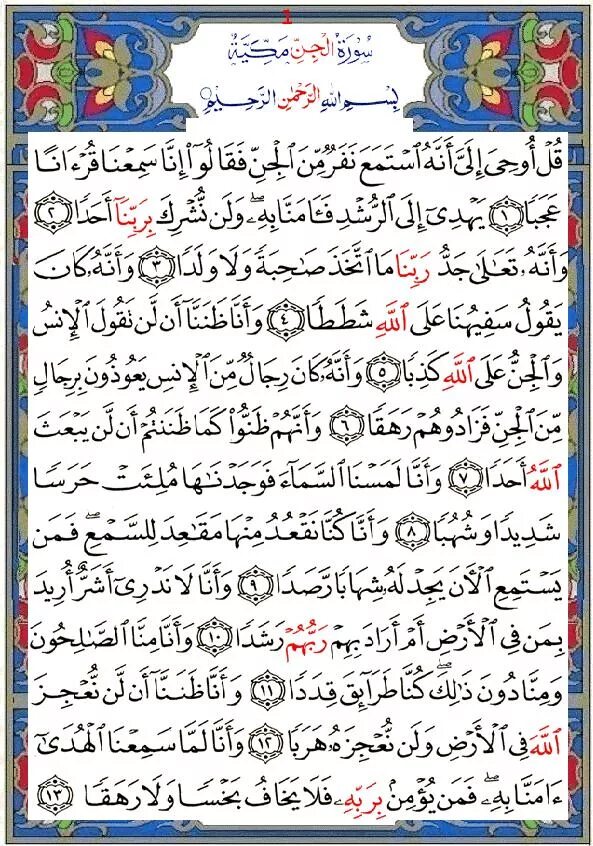 1
سُورَةُ الْجِنِّ مَكِّيَّةٌ
بِسْمِ اللَّهِ الرَّحْمَٰنِ الرَّحِيمِ
قُلْ أُوحِىَ إِلَىَّ أَنَّهُ ٱسْتَمَعَ نَفَرٌ مِّنَ ٱلْجِنِّ فَقَالُوٓا۟ إِنَّا سَمِعْنَا قُرْءَانًا
عَجَبًا ﴿١﴾ يَهْدِىٓ إِلَى ٱلرُّشْدِ فَـَٔامَنَّا بِهِۦ ۖ وَلَن نُّشْرِكَ بِرَبِّنَآ أَحَدًا ﴿٢﴾
وَأَنَّهُۥ تَعَـٰلَىٰ جَدُّ رَبِّنَا مَا ٱتَّخَذَ صَـٰحِبَةً وَلَا وَلَدًا ﴿٣﴾ وَأَنَّهُۥ كَانَ
يَقُولُ سَفِيهُنَا عَلَى ٱللَّهِ شَطَطًا ﴿٤﴾ وَأَنَّا ظَنَنَّآ أَن لَّن تَقُولَ ٱلْإِنسُ
وَٱلْجِنُّ عَلَى ٱللَّهِ كَذِبًا ﴿٥﴾ وَأَنَّهُۥ كَانَ رِجَالٌ مِّنَ ٱلْإِنسِ يَعُوذُونَ بِرِجَالٍ
مِّنَ ٱلْجِنِّ فَزَادُوهُمْ رَهَقًا ﴿٦﴾ وَأَنَّهُمْ ظَنُّوا۟ كَمَا ظَنَنتُمْ أَن لَّن يَبْعَثَ
ٱللَّهُ أَحَدًا ﴿٧﴾ وَأَنَّا لَمَسْنَا ٱلسَّمَآءَ فَوَجَدْنَـٰهَا مُلِئَتْ حَرَسًا
شَدِيدًا وَشُهُبًا ﴿٨﴾ وَأَنَّا كُنَّا نَقْعُدُ مِنْهَا مَقَـٰعِدَ لِلسَّمْعِ ۖ فَمَن
يَسْتَمِعِ ٱلْـَٔانَ يَجِدْ لَهُۥ شِهَابًا رَّصَدًا ﴿٩﴾ وَأَنَّا لَا نَدْرِىٓ أَشَرٌّ أُرِيدَ
بِمَن فِى ٱلْأَرْضِ أَمْ أَرَادَ بِهِمْ رَبُّهُمْ رَشَدًا ﴿١٠﴾ وَأَنَّا مِنَّا ٱلصَّـٰلِحُونَ
وَمِنَّا دُونَ ذَٰلِكَ ۖ كُنَّا طَرَآئِقَ قِدَدًا ﴿١١﴾ وَأَنَّا ظَنَنَّآ أَن لَّن نُّعْجِزَ
ٱللَّهَ فِى ٱلْأَرْضِ وَلَن نُّعْجِزَهُۥ هَرَبًا ﴿١٢﴾ وَأَنَّا لَمَّا سَمِعْنَا ٱلْهُدَىٰٓ
ءَامَنَّا بِهِۦ ۖ فَمَن يُؤْمِنۢ بِرَبِّهِۦ فَلَا يَخَافُ بَخْسًا وَلَا رَهَقًا ﴿١٣﴾